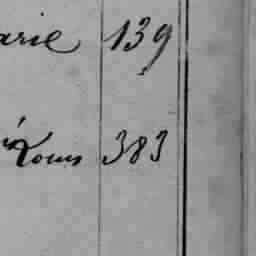 arie 139
Louis 383